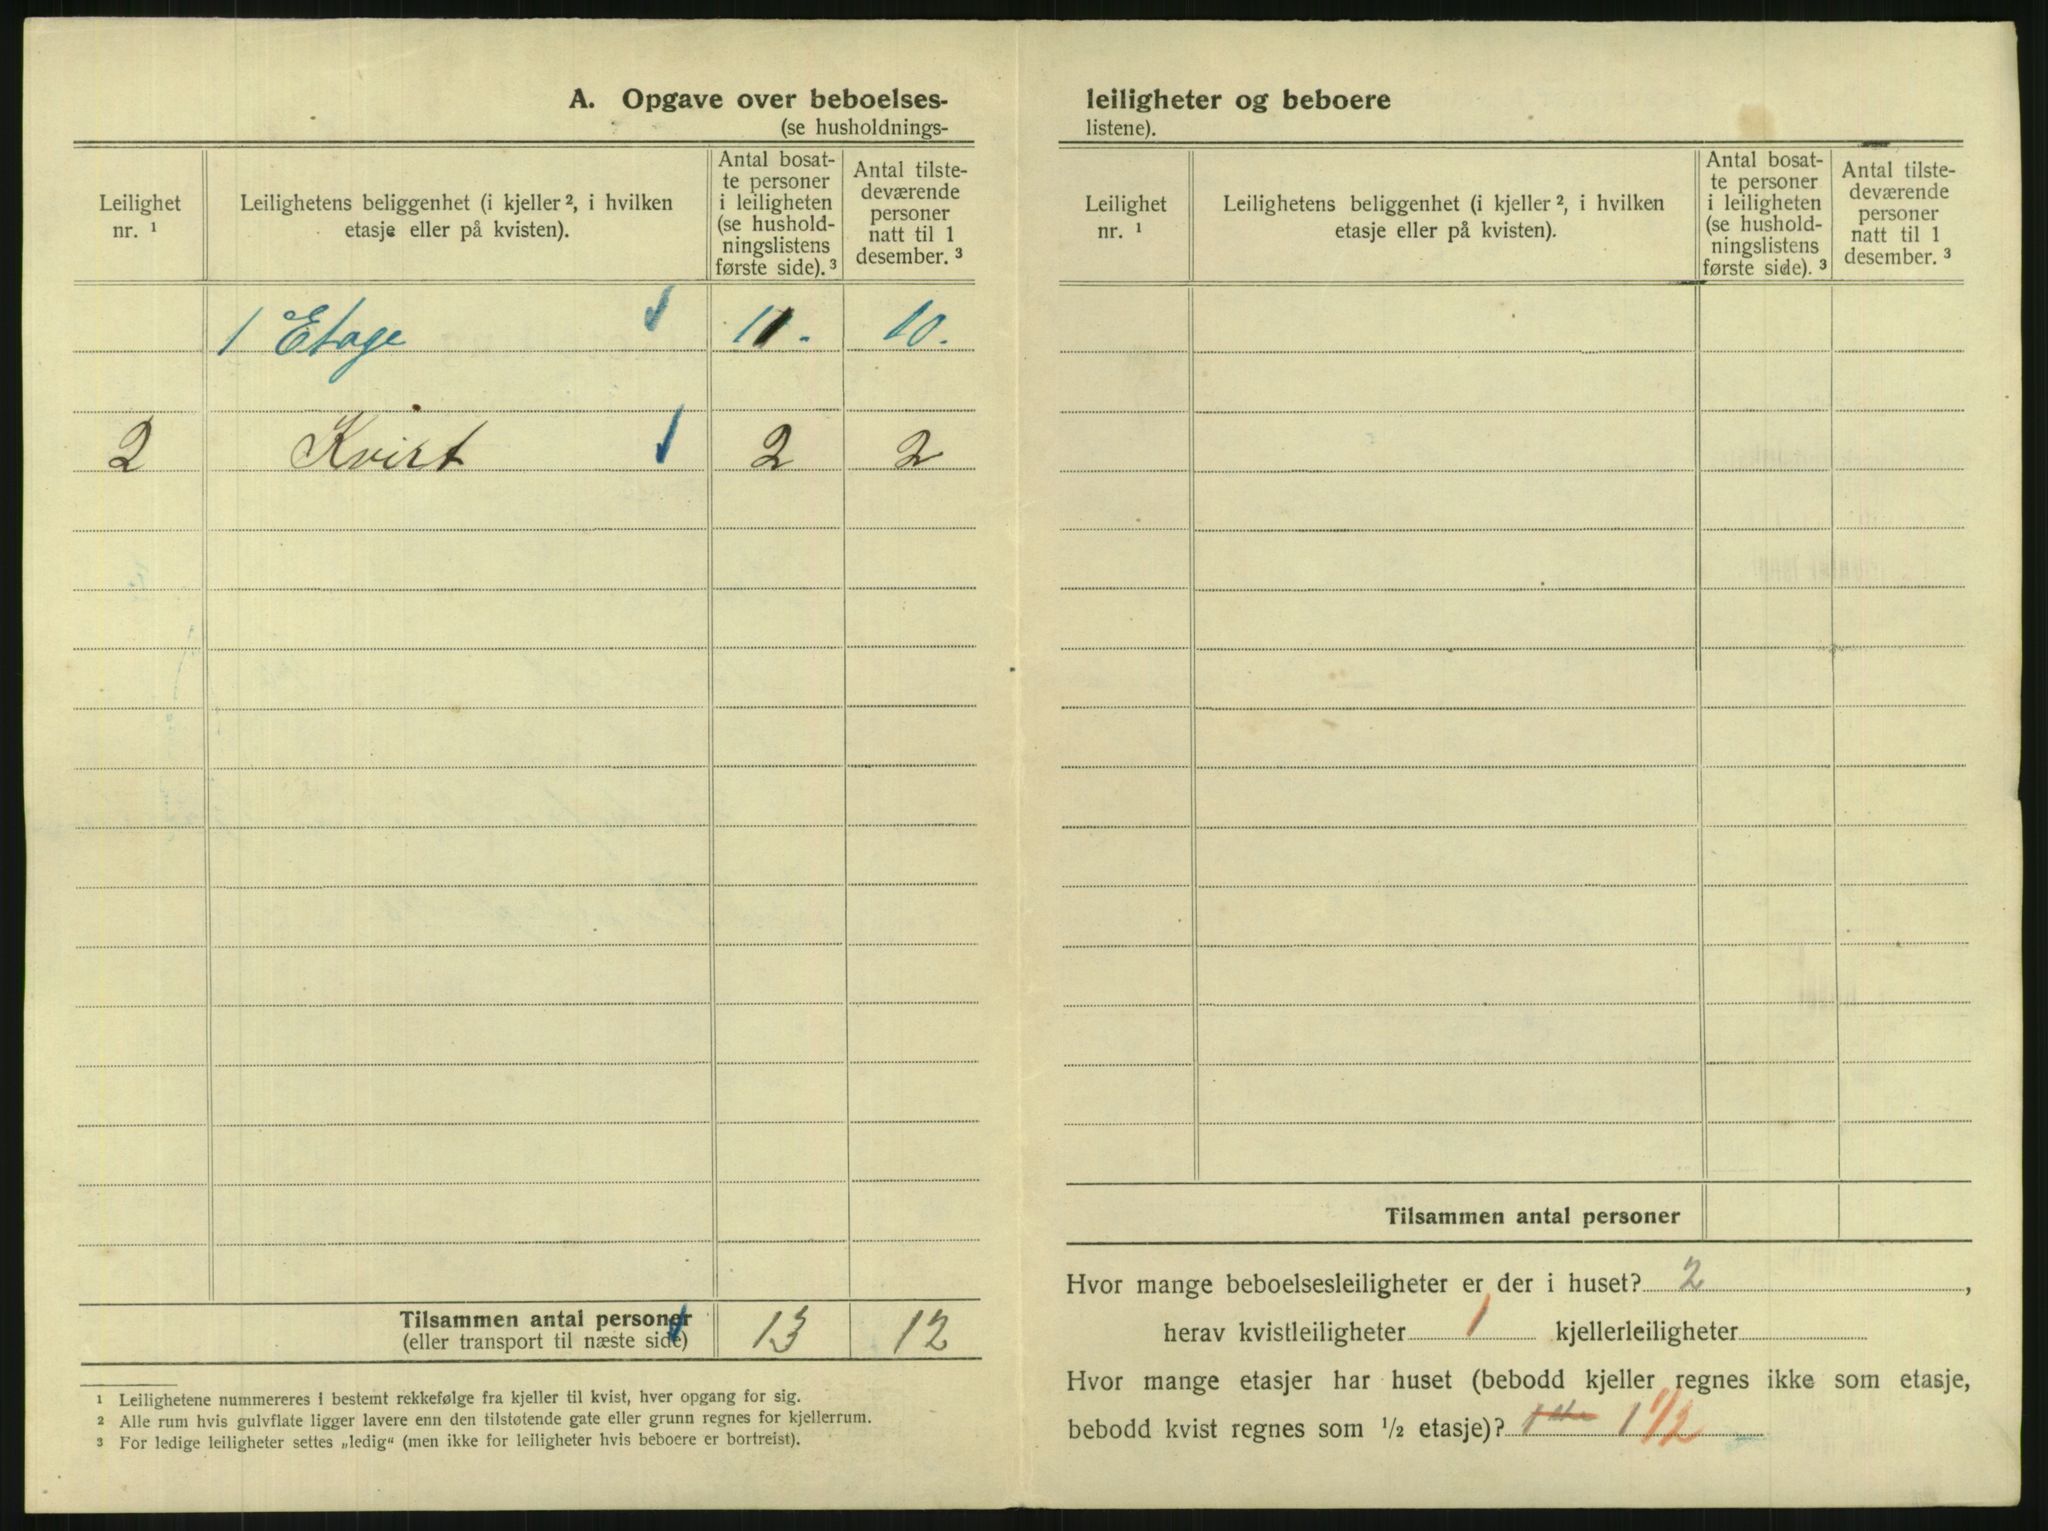 A. Opgave over beboelses-
(se husholdnings-
Leilighet
nr. ¹
Leilighetens beliggenhet (i kjeller ², i hvilken
etasje eller på kvisten).
Antal bosat-
te personer
i leiligheten
(se hushold-
ningslistens
første side). ³
Antal tilste-
deværende
personer
natt til 1
desember. ³
1 Etage 11. 10.
2 Kvist 2 2
Tilsammen antal personer 13 12
(eller transport til næste side)
¹ Leilighetene nummereres i bestemt rekkefølge fra kjeller til kvist, hver opgang for sig.
² Alle rum hvis gulvflate ligger lavere enn den tilstøtende gate eller grunn regnes for kjellerrum.
³ For ledige leiligheter settes „ledig“ (men ikke for leiligheter hvis beboere er bortreist).
leiligheter og beboere
listene).
Leilighet
nr. ¹
Leilighetens beliggenhet (i kjeller ², i hvilken
etasje eller på kvisten).
Antal bosat-
te personer
i leiligheten
(se hushold-
ningslistens
første side). ³
Antal tilste-
deværende
personer
natt til 1
desember. ³
Tilsammen antal personer
Hvor mange beboelsesleiligheter er der i huset? 2,
herav kvistleiligheter 1 kjellerleiligheter
Hvor mange etasjer har huset (bebodd kjeller regnes ikke som etasje,
bebodd kvist regnes som ½ etasje)? 1 1/2